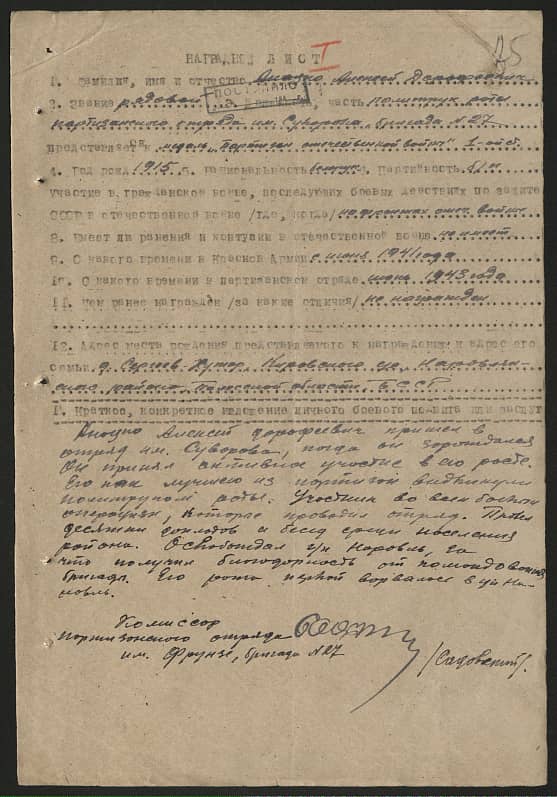 НАГРАДНОЙ ЛИСТ I
1. Фамилия, имя и отчество Алексей Дорофеевич
2. Звание рядовой ПОСТУПИЛО , часть политрук роты
партизанского отряда им. Суворова, бригада №27
представляется к медаль „Партизан отечественной войны" I-ой ст.
4. Год рожд 1915 г. Национальность Партийность б/п
участие в гражданской войне, последующих боевых действиях по защите
СССР в отечественной войне /где, когда/ на фронтах отеч. войны
8. Имеет ли ранения и контузии в отечественной войне не имеет
9. С какого времени в Красной Армии с июня 1941 года
10. С какого времени в партизанском отряде июнь 1943 года
11. Чем ранее награжден /за какие отличия/ не награжден
12. Адрес места рождения представляемого к награждению и адрес его
семьи д. Сергеев Хутор, Кировского с/с, Наровлян-
ского района, Полесской области БССР
1. Краткое, конкретное изложение личного боевого подвига или заслуг
Алексей Дорофеевич пришел в
отряд им. Суворова, когда он зарождался
Он принял активное участие в его росте.
Его как лучшего из партизан выдвинули
политруком роты. Участник во всех боевых
операциях, которые проводил отряд. Провел
десятки докладов и бесед среди населения
района. Освобождал г/п Наровль, за
что получил благодарность от командования
бригады. Его рота первой ворвалась в г/п На-
ровль.
Комиссар
партизанского отряда
им. Фрунзе, бригада №27
/Садовский/.